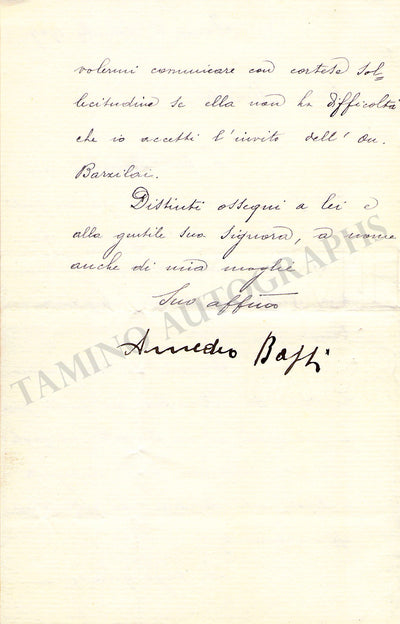 volermi comunicare con cortese sol=
lecitudine se ella non ha difficoltà
che io accetti l'invito dell' On.
Barzilai.
Distinti ossequi a lei e
alla gentile sua signora, a nome
anche di mia moglie
Suo affmo
Amedeo Bassi
TAMINO AUTOGRAPHS